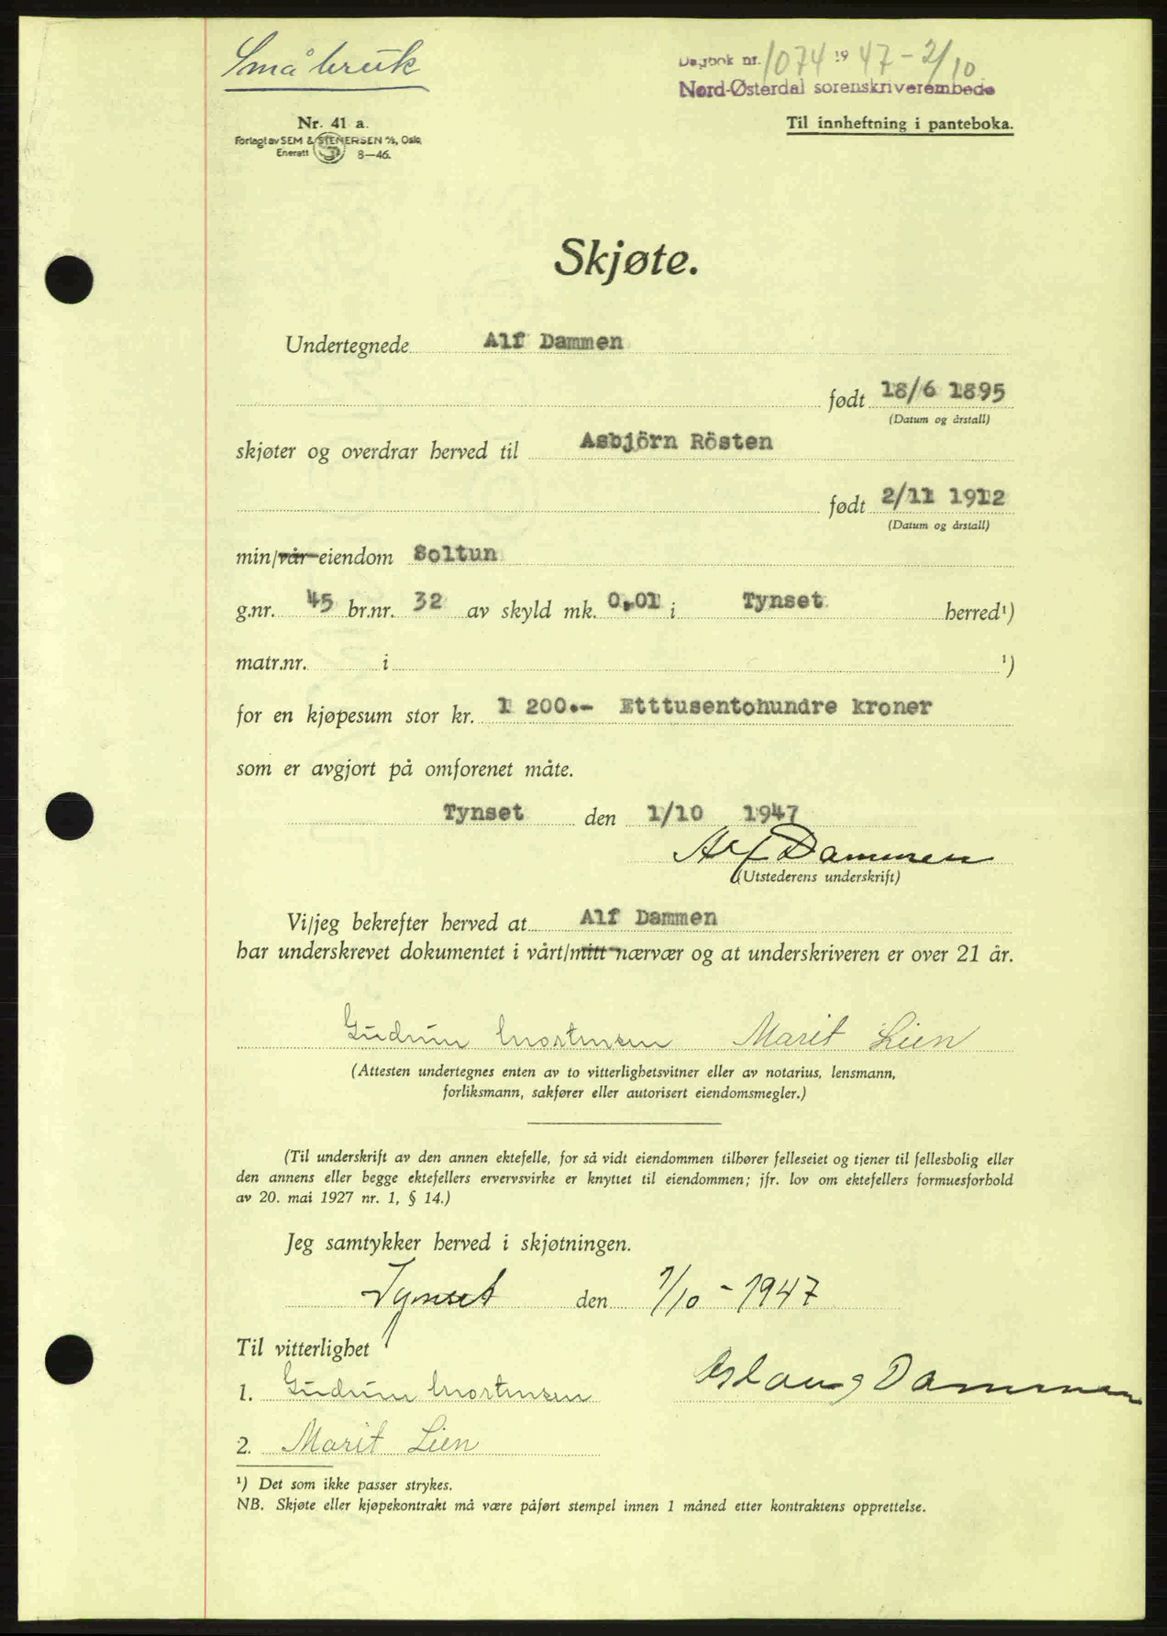 Småbruk
Dagbok nr. 1074 1947 - 2/10
Nord-Østerdal sorenskriverembede
Nr. 41 a.
Til innheftning i panteboka.
Forlagt av SEM & STENERSEN A/S, Oslo.
Enerett 8—46.
Skjøte.
Undertegnede Alf Dammen
født 18/6 1895
(Datum og årstall)
skjøter og overdrar herved til Asbjörn Rösten
født 2/11 1912
(Datum og årstall)
min/vår eiendom Soltun
g.nr. 45 br.nr. 32 av skyld mk. 0,01 i Tynset herred¹)
matr.nr. i ¹)
for en kjøpesum stor kr. 1 200.- Etttusentohundre kroner
som er avgjort på omforenet måte.
Tynset den 1/10 1947
Alf Dammen
(Utstederens underskrift)
Vi/jeg bekrefter herved at Alf Dammen
har underskrevet dokumentet i vårt/mitt nærvær og at underskriveren er over 21 år.
Gudrun Mortensen Marit Lien
(Attesten undertegnes enten av to vitterlighetsvitner eller av notarius, lensmann,
forliksmann, sakfører eller autorisert eiendomsmegler.)
(Til underskrift av den annen ektefelle, for så vidt eiendommen tilhører felleseiet og tjener til fellesbolig eller
den annens eller begge ektefellers ervervsvirke er knyttet til eiendommen; jfr. lov om ektefellers formuesforhold
av 20. mai 1927 nr. 1, § 14.)
Jeg samtykker herved i skjøtningen.
Tynset den 1/10 - 1947
Til vitterlighet
Aslaug Dammen
1. Gudrun Mortensen
2. Marit Lien
¹) Det som ikke passer strykes.
NB. Skjøte eller kjøpekontrakt må være påført stempel innen 1 måned etter kontraktens opprettelse.